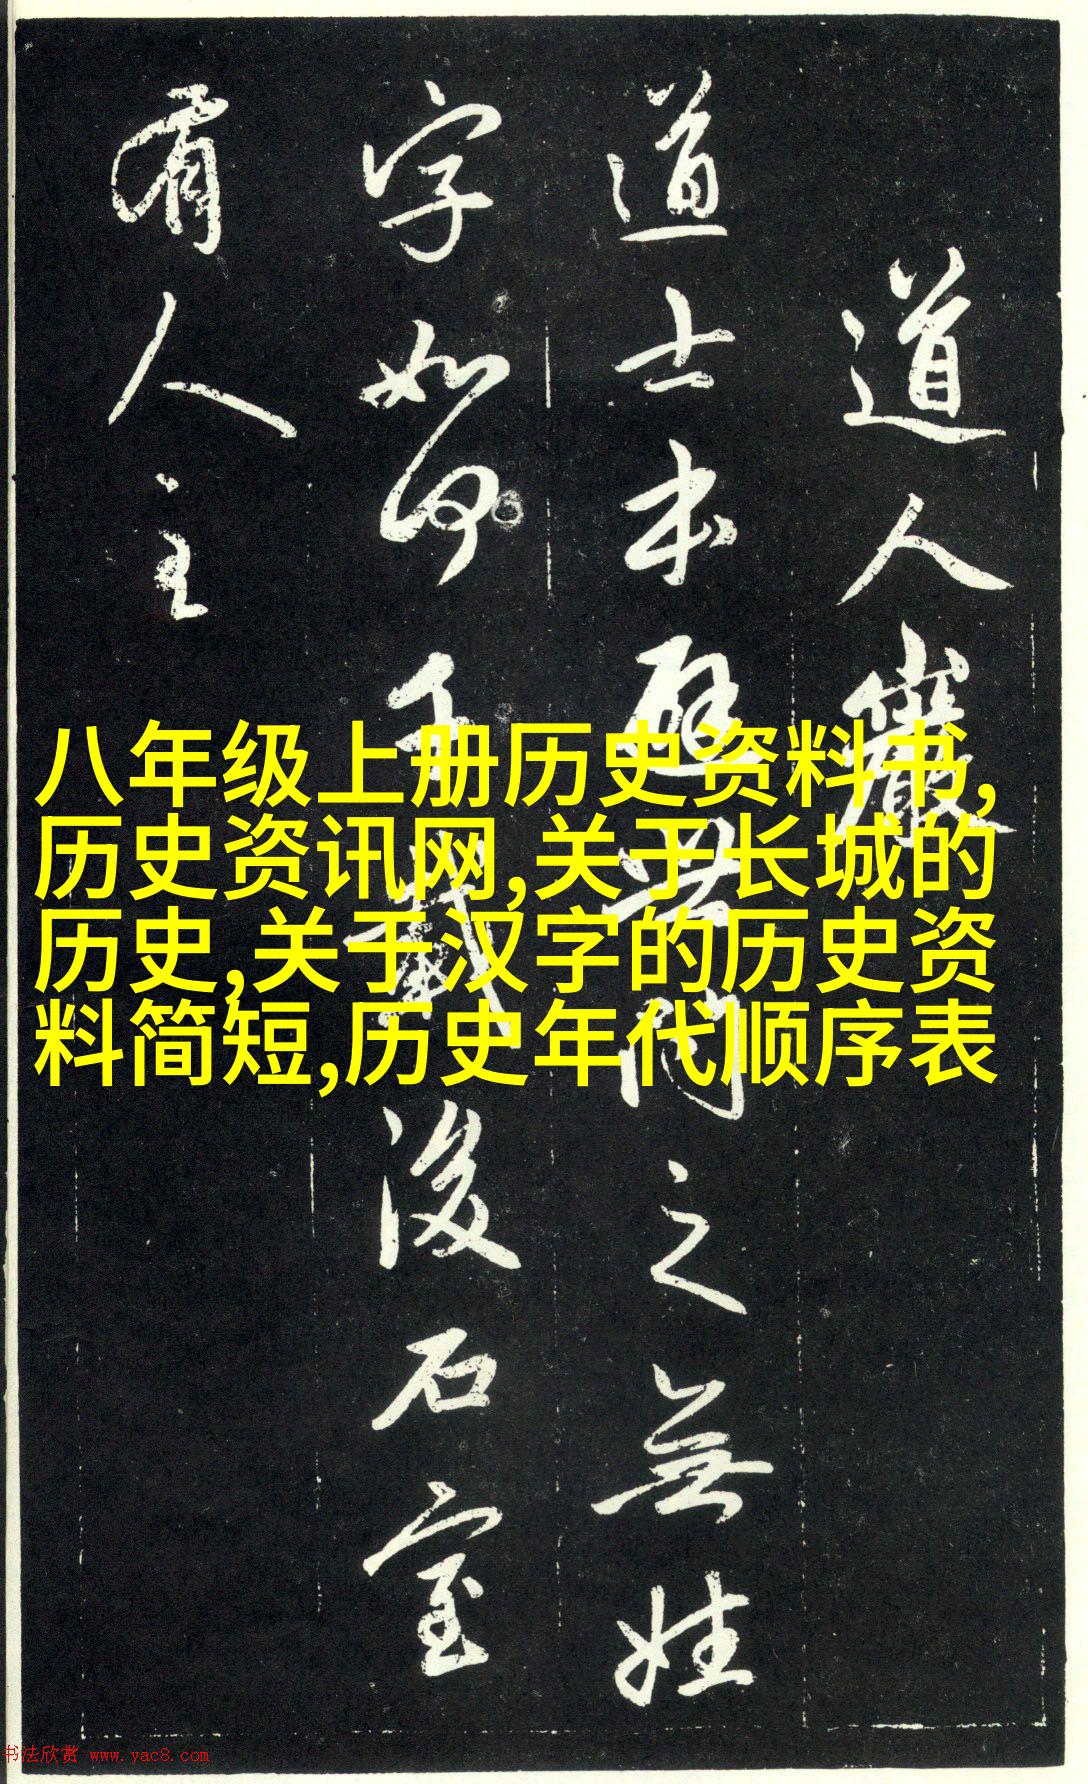 道人巖
道士本避世問之無姓
字如何千載後石室
有人主
八年级上册历史资料书,
历史资讯网,关于长城的
历史,关于汉字的历史资
料简短,历史年代顺序表
书法欣赏 www.yac8.com